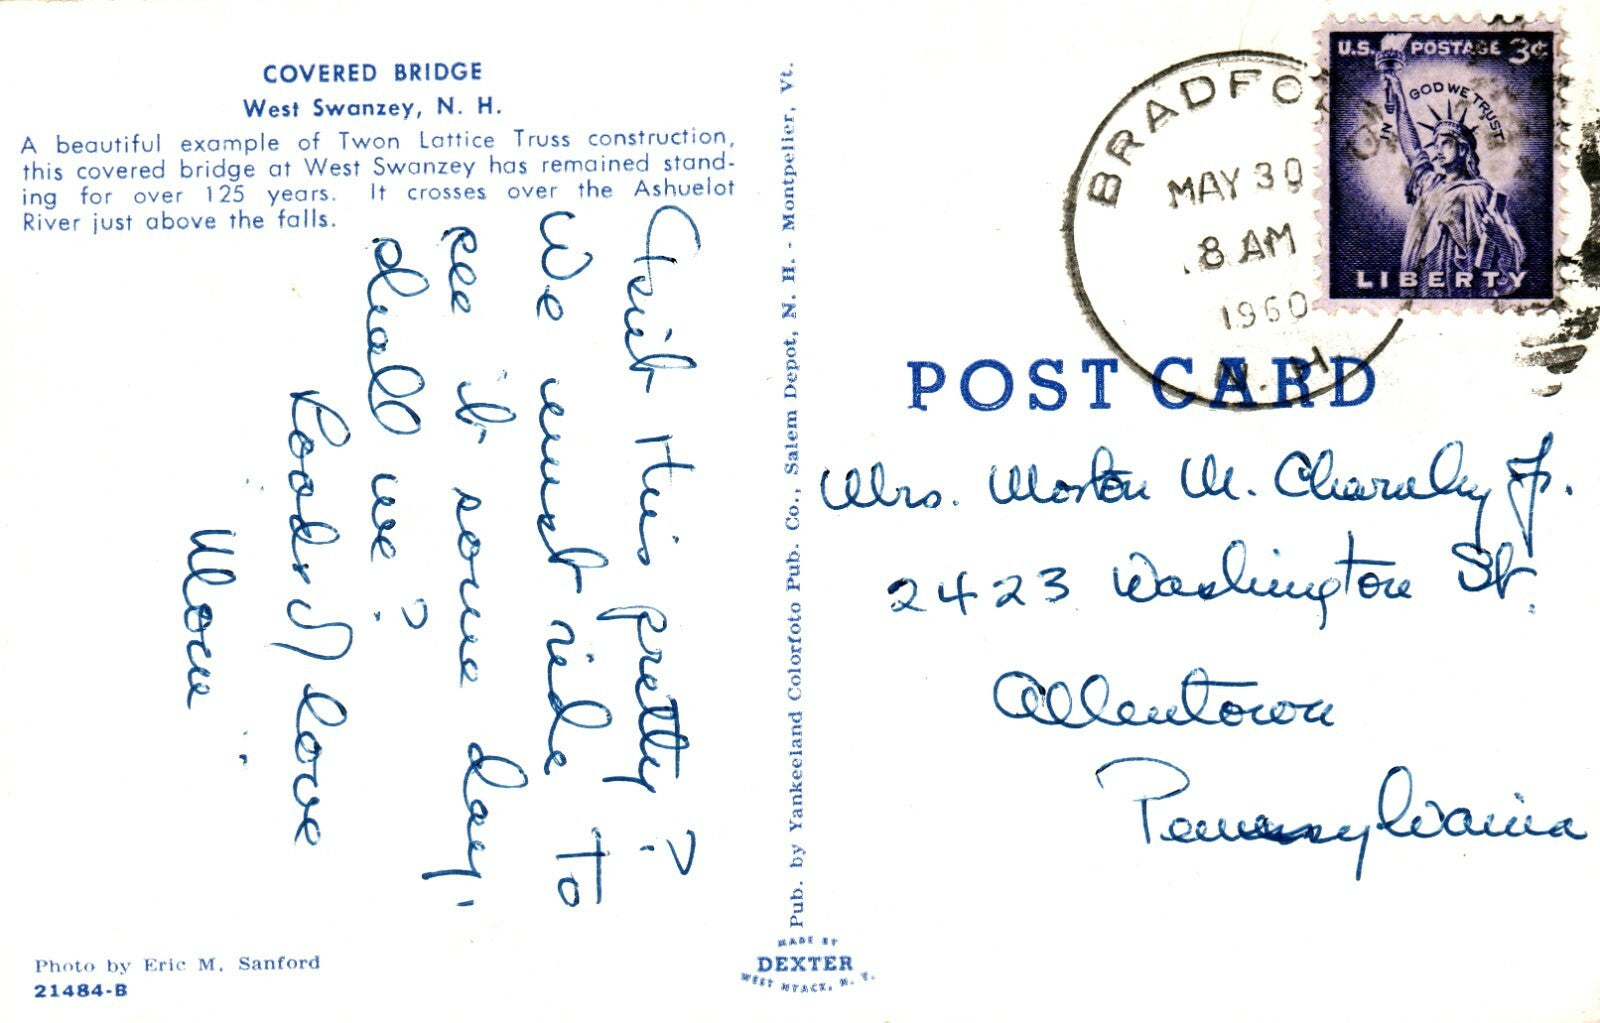 COVERED BRIDGE
West Swanzey, N. H.
A beautiful example of Twon Lattice Truss construction,
this covered bridge at West Swanzey has remained stand-
ing for over 125 years. It crosses over the Ashuelot
River just above the falls.
this pretty?
We must ride to
see it some day,
shall we?
Loads of love
Photo by Eric M. Sanford
21484-B
Pub. by Yankeeland Colorfoto Pub. Co., Salem Depot, N. H. - Montpelier, Vt.
MADE BY
DEXTER
WEST NYACK, N. Y.
BRADFO
MAY 30
8 AM
1960
N. H.
U.S. POSTAGE 3¢
IN GOD WE TRUST
LIBERTY
POST CARD
Mrs. Morton M. Jr.
2423 Washington St.
Allentown
Pennsylvania